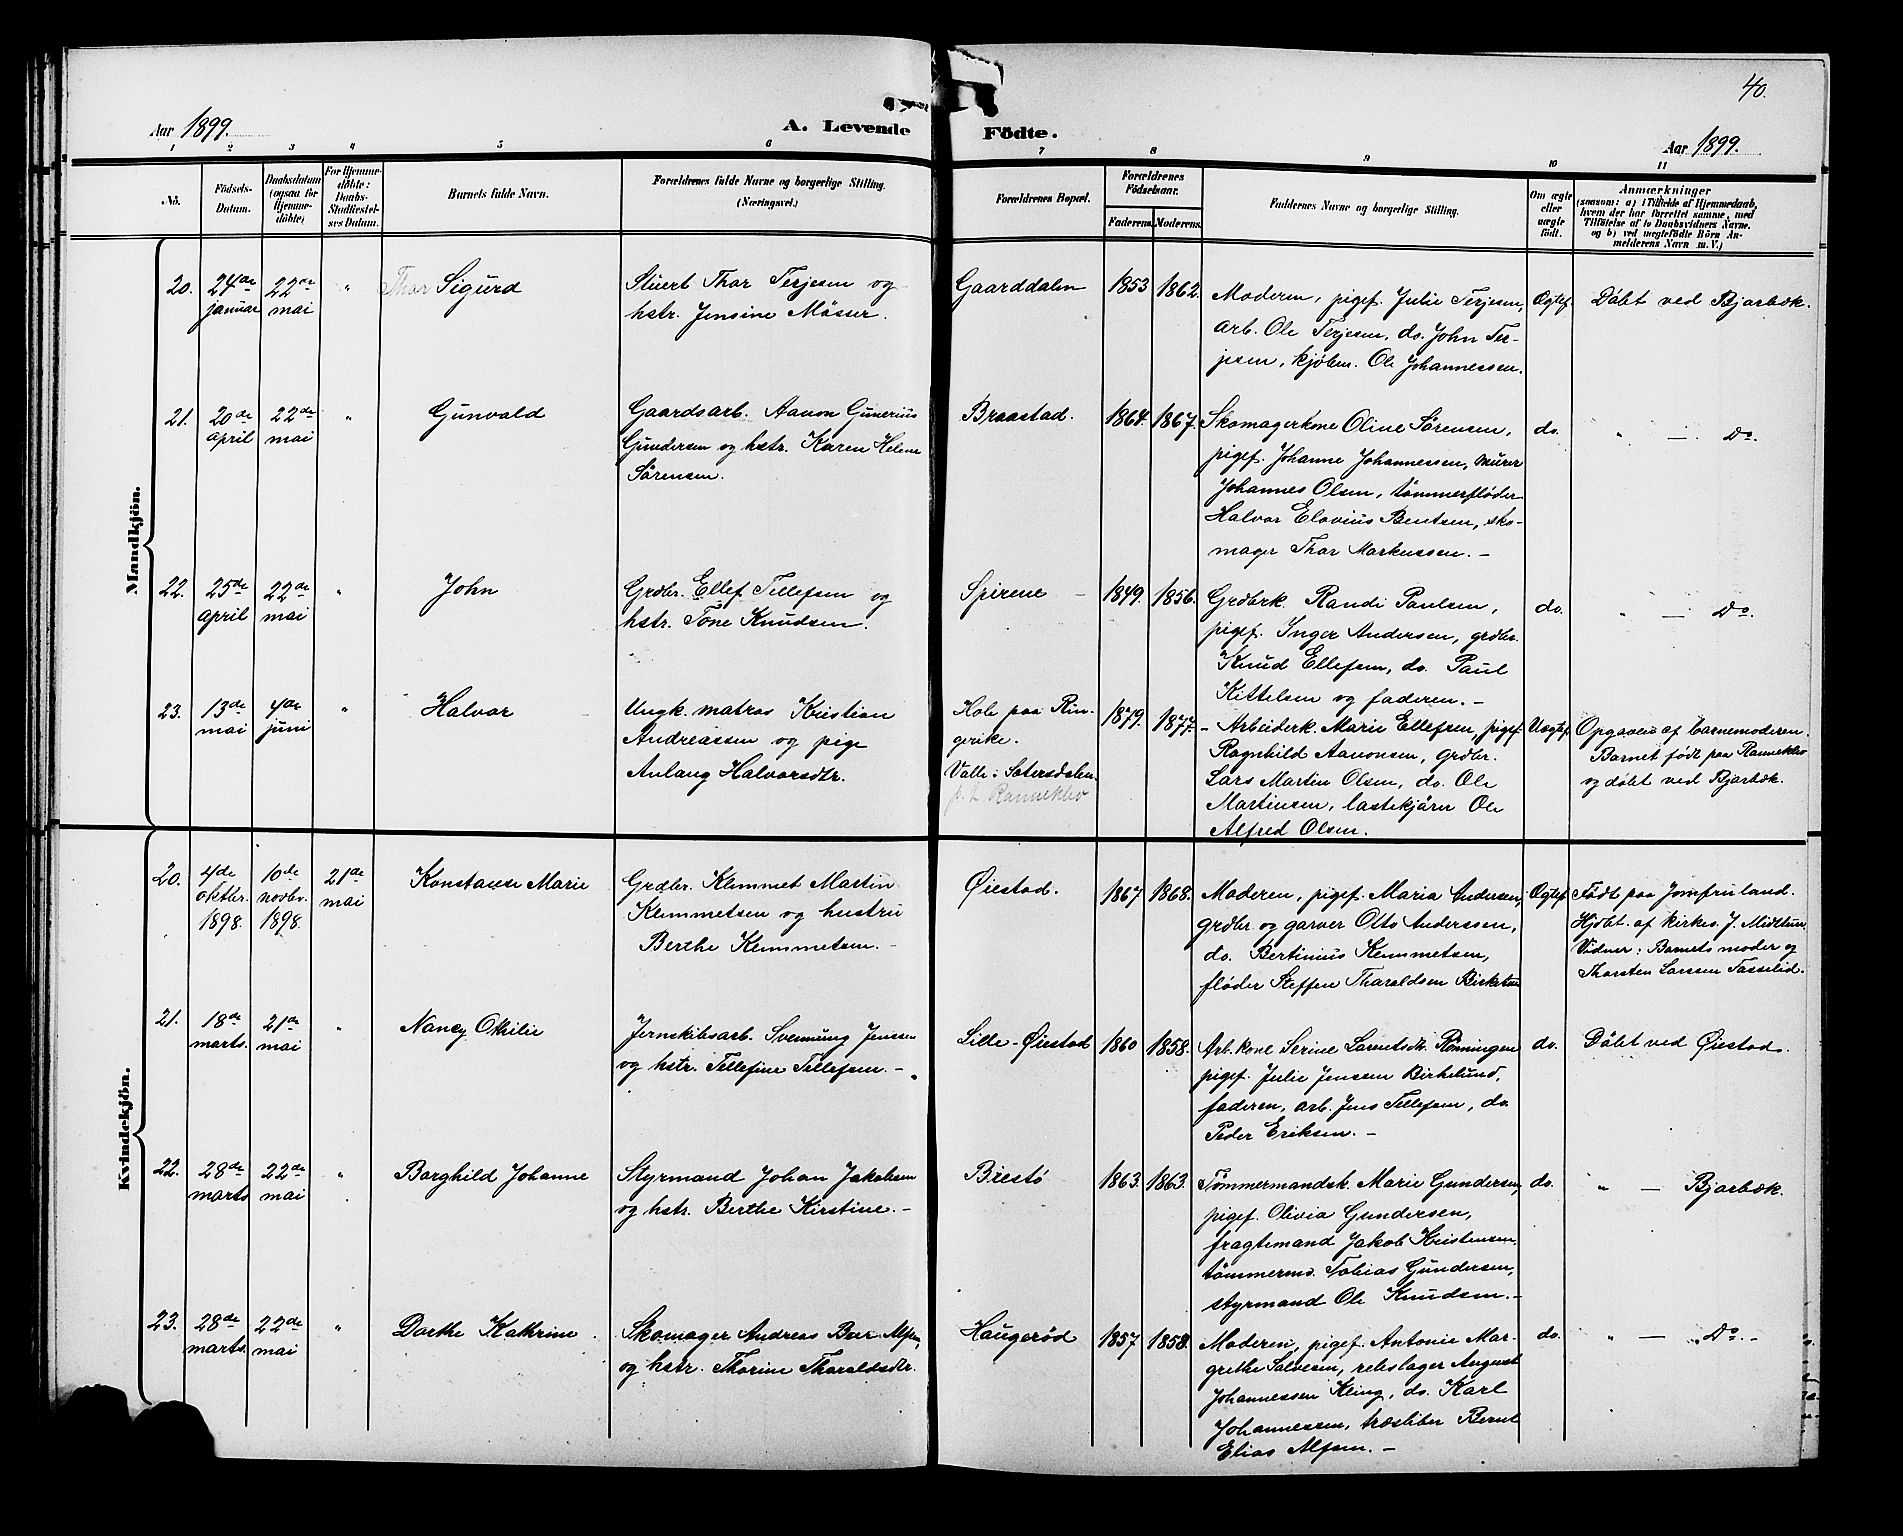 40.
Aar 1899.
A. Levende Födte.
Aar 1899.
1 2 3 4 5 6 7 8 9 10 11
No.
Födsels-
Datum.
Daabsdatum
(ogsaa for
Hjemme-
döbte)
For Hjemme-
döbte:
Daabs-
Stadfæstel-
ses Datum.
Barnets fulde Navn.
Forældrenes fulde Navne og borgerlige Stilling.
(Næringsvei.)
Forældrenes Bopæl.
Forældrenes
Födselsaar.
Faderens. Moderens.
Faddernes Navne og borgerlige Stilling.
Om ægte
eller
uægte
født.
Anmærkninger
(saasom: a) i Tilfælde af Hjemmedaab,
hvem der har forrettet samme, med
Tilföielse af to Daabsvidners Navne.
og b) ved uægtefödte Börn An-
melderens Navn m. V.)
Mandkjön.
20.
24de
januar
22de
mai
"
Thor Sigurd
Stuert Thor Terjesen og
hstr. Jensine Mösser.
Gaarddalen
1853
1862.
Moderen, pigef. Julie Terjesen,
arb. Ole Terjesen, do. John Ter-
jesen, kjøbm. Ole Johannessen.
Ægtef.
Døbt ved Bjorbæk.
21.
20de
april
22de
mai
"
Gunvald
Gaardsarb. Aavon Gunerius
Gundersen og hstr. Karen Helene
Sørensen.
Braastad.
1864.
1867.
Skomagerkone Oline Sørensen,
pigef. Johanne Johannessen, murer
Johannes Olsen, tømmerfløder
Halvor Elovius Bentsen, sko-
mager Thor Markussen. –
do.
" — Do.
22.
25de
april
22de
mai
"
John
Grdbr. Ellef Tellefsen og
hstr. Tone Knudsen.
Spirene
1849.
1856.
Grdbrk. Randi Paulsen,
pigef. Inger Andersen, grdbr.
Knud Ellefsen, do. Paul
Kittelsen og faderen. –
do.
" — Do.
23.
13de
mai
4de
juni
"
Halvor
Ungk. matros Kristian
Andreassen og pige
Anlaug Halvorsdtr.
Hole paa Rin-
gerike.
Valle i Sætersdalen.
p.t. Ranneklev
1879.
1877.
– Arbeiderk. Marie Ellefsen, pigef.
Ragnhild Aanonsen, grdbr.
Lars Martin Olsen, do. Ole
Martinsen, lastekjører Ole
Alfred Olsen.
Uægtef.
Opgaven af barnemoderen.
Barnet født paa Ranneklev
og døbt ved Bjorbæk.
Kvindekjön.
20.
4de
oktbr.
1898.
10de
novbr.
1898.
21de
mai
Konstanse Marie
Grdbr. Klemmet Martin
Klemmetsen og hustru
Berthe Klemmetsen. –
Øiestad.
1867
1868.
Moderen, pigef. Maria Andersen,
grdbr. og garver Otto Anderssen,
do. Bertinius Klemmetsen,
fløder Steffen Tharaldsen
Ægtef.
Født paa Jomfruland.
Hjdbt. af kirkes. J. Midttun.
Vidner: Barnets moder og
Thorsten Larssen
21.
18de
marts.
21de
mai
"
Nancy Othilie
Jernskibsarb. Svennung Jenssen
og hstr. Tellefine Tellefsen. –
Lille-Øiestad
1860
1858.
Arb. kone Serine Larentsdtr. Rønningen
pigef. Julie Jensen Birkelund,
faderen, arb. Jens Tellefsen, do.
Peder Eriksen. –
do.
Døbt ved Øiestad.
22.
28de
marts
22de
mai
"
Borghild Johanne
Styrmand Johan Jakobsen
og hstr. Berthe Kirstine. –
Bræstø
1863.
1863.
Tømmermandsk. Marie Gundersen,
pigef. Olivia Gundersen,
fragtemand Jakob Kristensen,
tømmerms. Tobias Gundersen,
styrmand Ole Knudsen. –
do.
" — Bjorbæk.
23.
28de
marts.
22de
mai
"
Dorthe Kathrine
Skomager Andreas Boer Alfsen,
og hstr. Thorine Tharaldsdtr.
Haugerød
1857
1858.
Moderen, pigef. Antonie Mar-
grethe Salvesen, rebslager August
Johannessen Kling, do. Karl
Johannessen, træsliber Bernt
Elias Alfsen. –
do.
" — Do. –